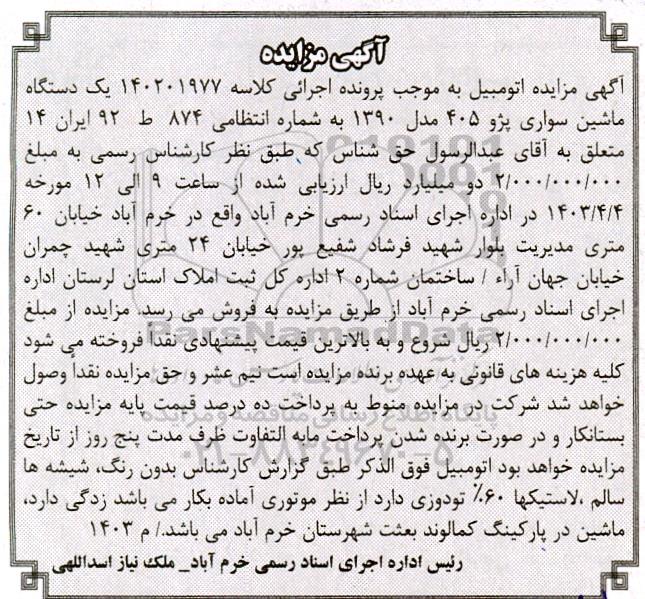 آگهی مزایده
آگهی مزایده اتومبیل به موجب پرونده اجرائی کلاسه ۱۴۰۲۰۱۹۷۷ یک دستگاه
ماشین سواری پژو ۴۰۵ مدل ۱۳۹۰ به شماره انتظامی ۸۷۴ ط ۹۲ ایران ۱۴
متعلق به آقای عبدالرسول حق شناس که طبق نظر کارشناس رسمی به مبلغ
۲/۰۰۰/۰۰۰/۰۰۰ دو میلیارد ریال ارزیابی شده از ساعت ۹ الی ۱۲ مورخه
۱۴۰۳/۴/۴ در اداره اجرای اسناد رسمی خرم آباد واقع در خرم آباد خیابان ۶۰
متری مدیریت بلوار شهید فرشاد شفیع پور خیابان ۲۴ متری شهید چمران
خیابان جهان آراء / ساختمان شماره ۲ اداره کل ثبت املاک استان لرستان اداره
اجرای اسناد رسمی خرم آباد از طریق مزایده به فروش می رسد. مزایده از مبلغ
۲/۰۰۰/۰۰۰/۰۰۰ ریال شروع و به بالاترین قیمت پیشنهادی نقداً فروخته می شود
کلیه هزینه های قانونی به عهده برنده مزایده است نیم عشر و حق مزایده نقداً وصول
خواهد شد شرکت در مزایده منوط به پرداخت ده درصد قیمت پایه مزایده حتی
بستانکار و در صورت برنده شدن پرداخت مابه التفاوت ظرف مدت پنج روز از تاریخ
مزایده خواهد بود اتومبیل فوق الذکر طبق گزارش کارشناس بدون رنگ، شیشه ها
سالم ،لاستیکها ۶۰٪ تودوزی دارد از نظر موتوری آماده بکار می باشد زدگی دارد،
ماشین در پارکینگ کمالوند بعثت شهرستان خرم آباد می باشد./ م ۱۴۰۳
رئیس اداره اجرای اسناد رسمی خرم آباد_ ملک نیاز اسداللهی
ParsNamadData
پایگاه اطلاع رسانی مناقصه و مزایده
۰۲۱-۸۸۳۴۹۶۷۰-۵